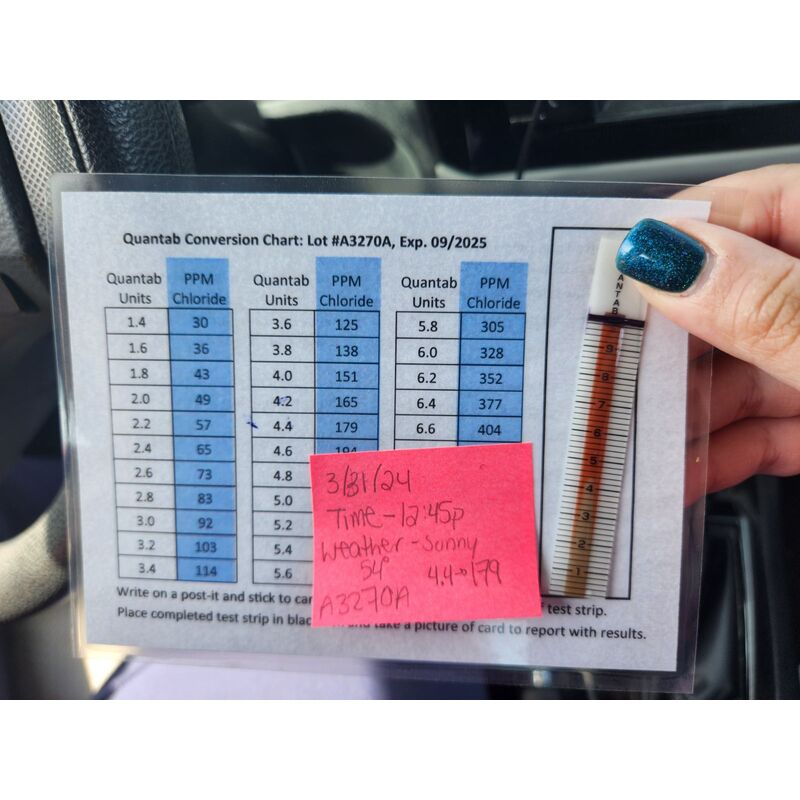 Quantab Conversion Chart: Lot #A3270A, Exp. 09/2025
Quantab Units PPM Chloride Quantab Units PPM Chloride Quantab Units PPM Chloride
1.4 30 3.6 125 5.8 305
1.6 36 3.8 138 6.0 328
1.8 43 4.0 151 6.2 352
2.0 49 4.2 165 6.4 377
2.2 57 4.4 179 6.6 404
2.4 65 4.6 194
2.6 73 4.8
2.8 83 5.0
3.0 92 5.2
3.2 103 5.4
3.4 114 5.6
3/31/24
Time-12:45p
Weather-Sunny
54° 4.4→179
A3270A
Write on a post-it and stick to test strip.
Place completed test strip in and take a picture of card to report with results.
ANTAB
9
8
7
6
5
4
3
2
1